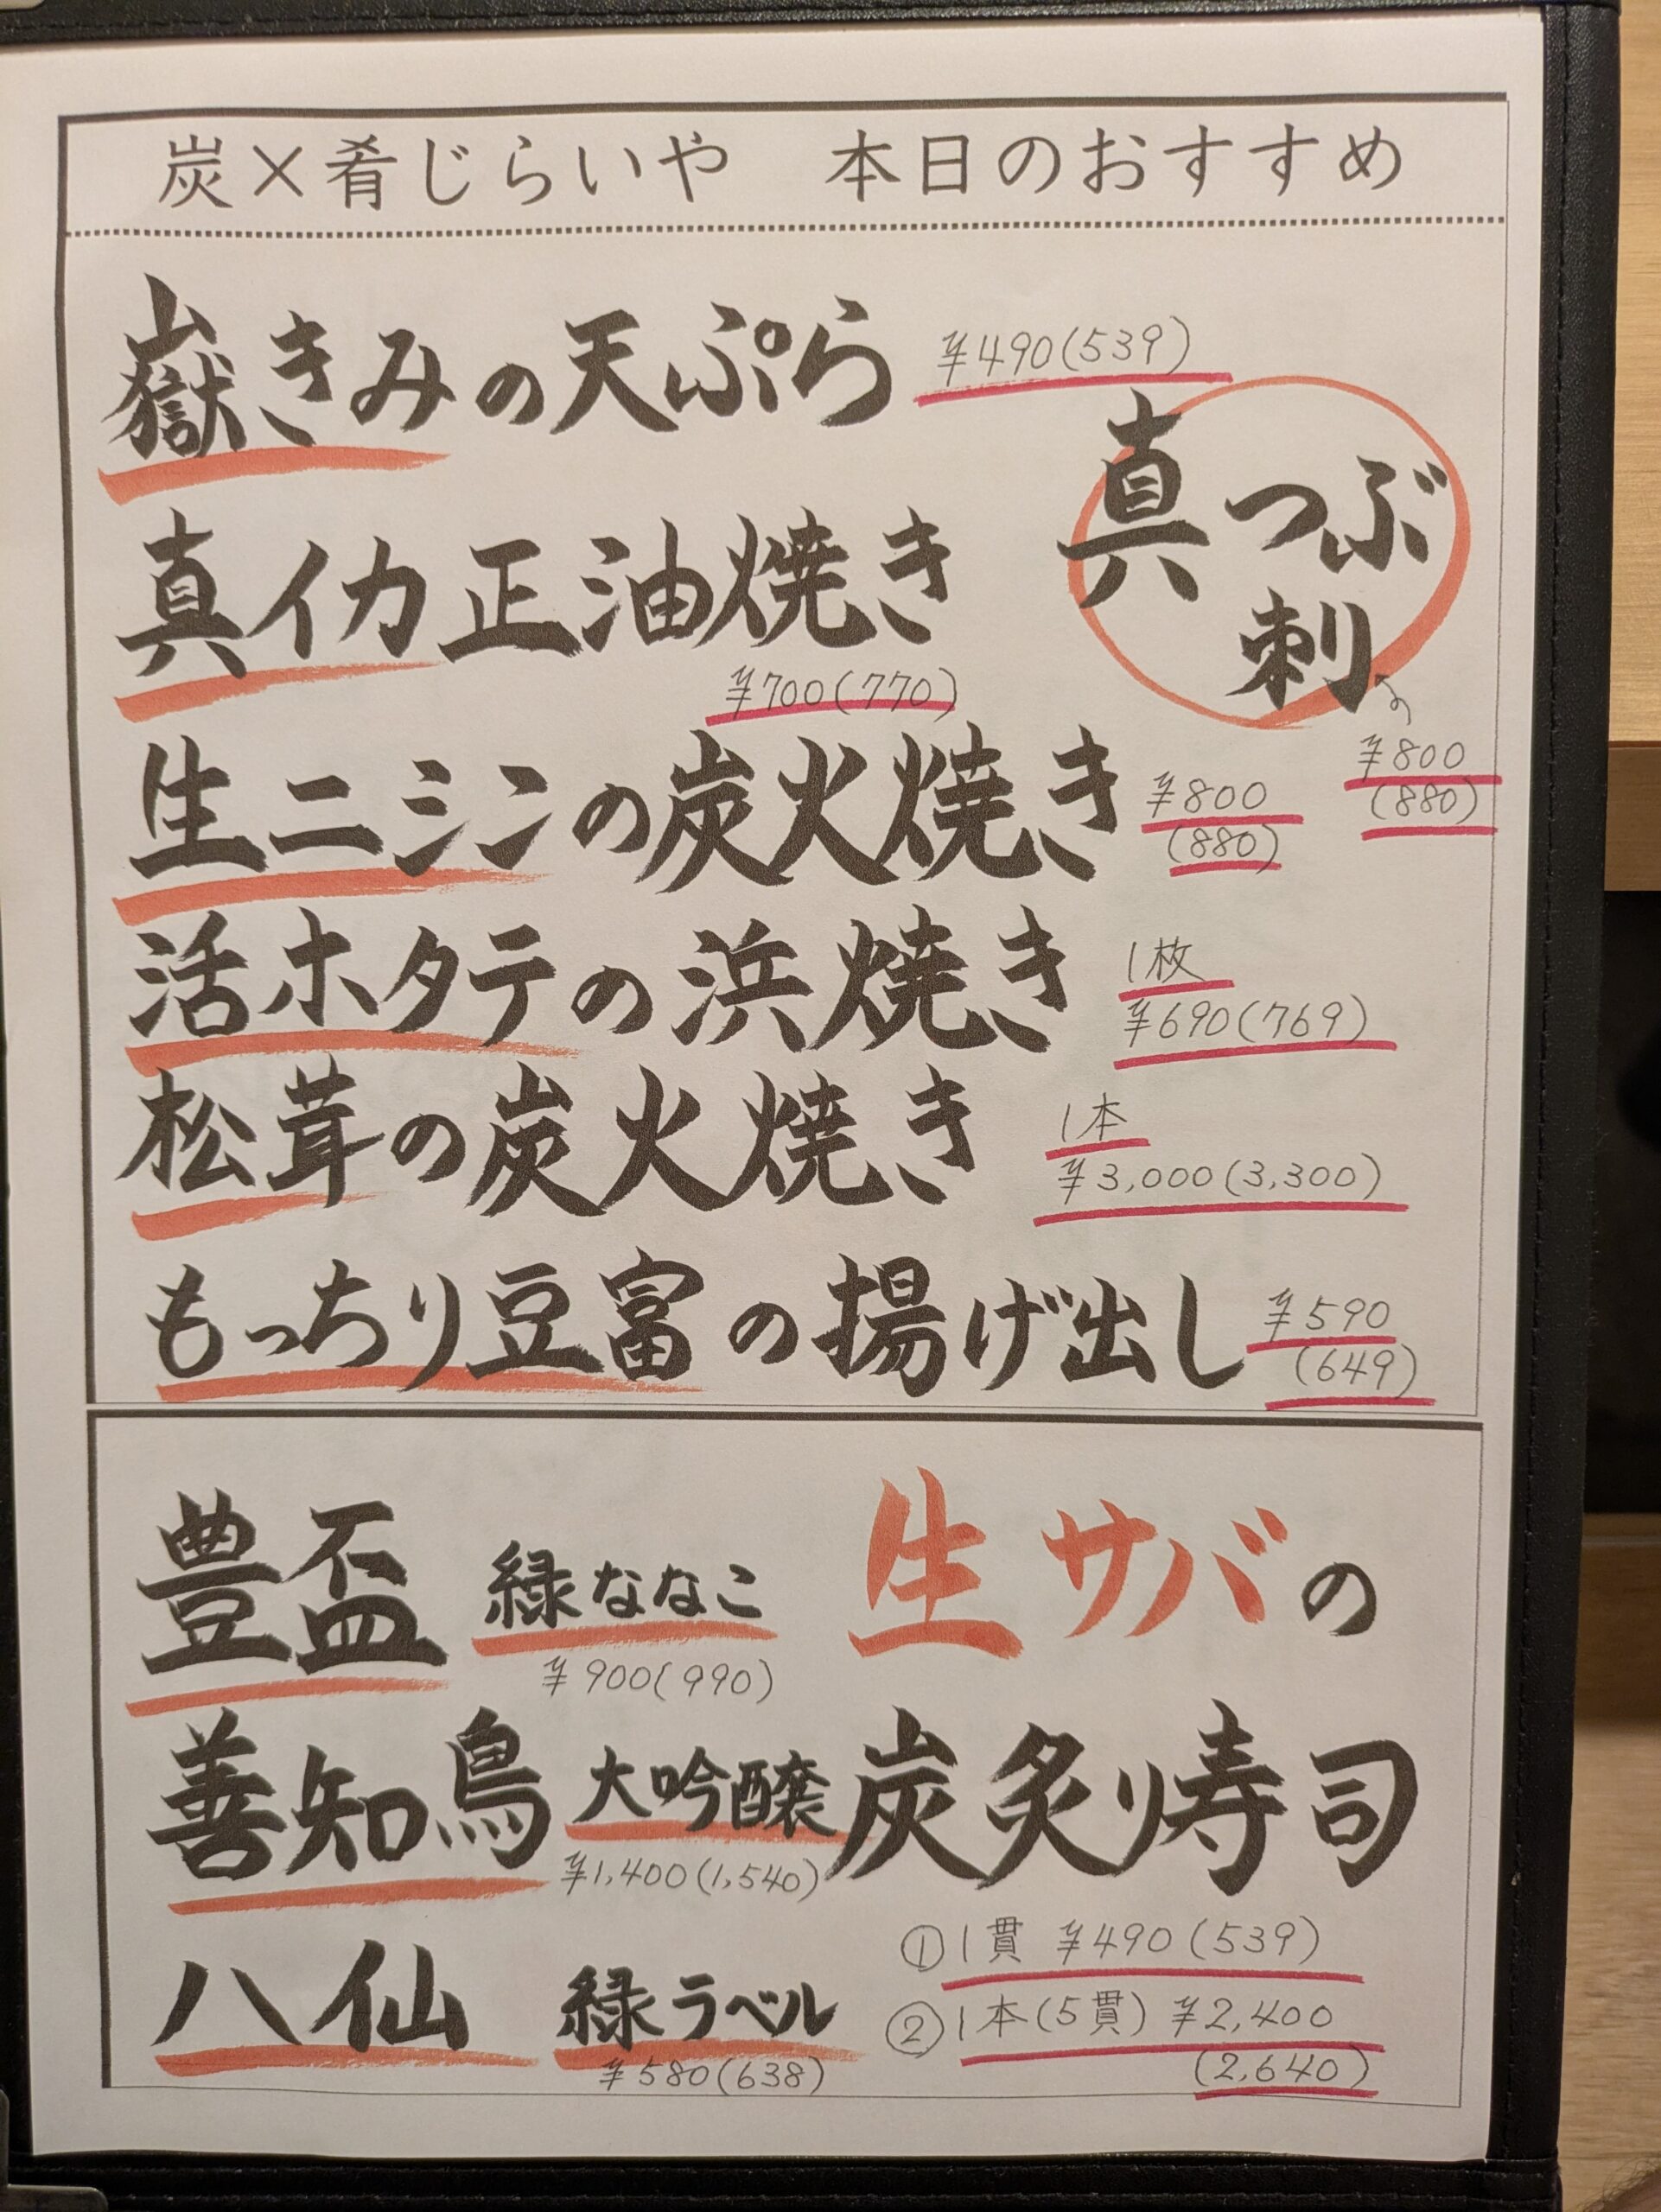 炭×肴じらいや　本日のおすすめ
嶽きみの天ぷら ¥490(539)
真つぶ
刺
¥800
(880)
真イカ正油焼き
¥700(770)
生ニシンの炭火焼き ¥800
(880)
活ホタテの浜焼き 1枚
¥690(769)
松茸の炭火焼き 1本
¥3,000(3,300)
もっちり豆富の揚げ出し ¥590
(649)
豊盃 緑ななこ
¥900(990)
善知鳥 大吟醸
¥1,400(1,540)
八仙 緑ラベル
¥580(638)
生サバの
炭炙り寿司
①1貫 ¥490(539)
②1本(5貫) ¥2,400
(2,640)